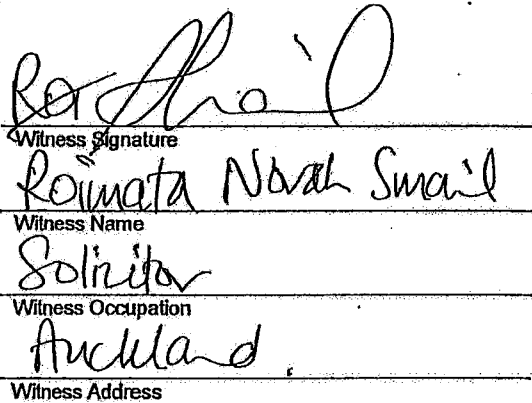 Witness Signature
Roimata Norah Smail
Witness Name
Solicitor
Witness Occupation
Auckland
Witness Address